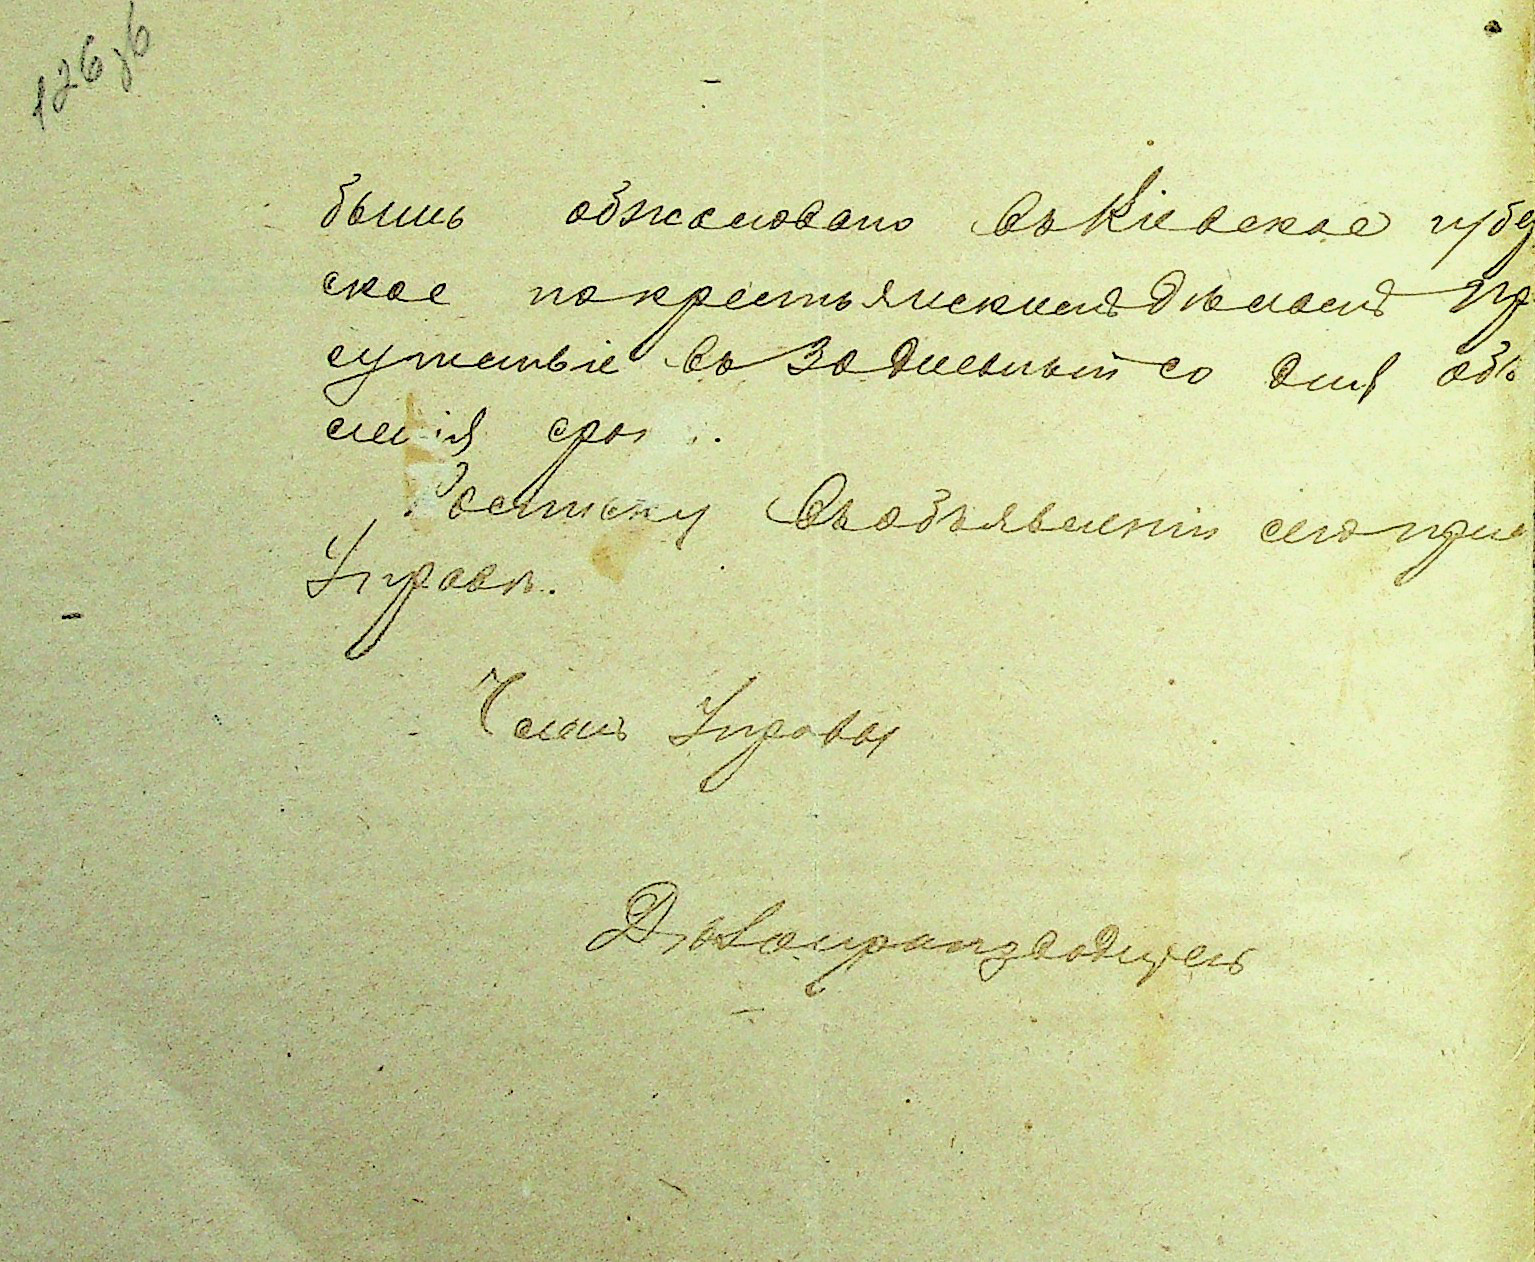 126 об
быть обжаловано въ Кіевское губер
ское по крестьянскимъ дѣламъ При
сутствіе въ 30 дневный со дня объ
ленія срок.
Росписку въ объявленіи сего при
Управѣ.
Членъ Управы
Дѣлопроизводитель